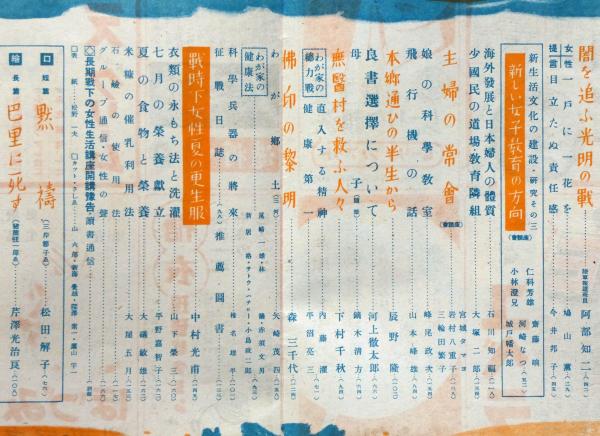 闇を追ふ光明の戰 陸軍報道班員 阿部知二
女性一戸に一花を 鳩山薫
提言 目立たぬ責任感 今井邦子
新生活文化の建設・研究その三
新しい女子教育の方向(座談會)
仁科芳雄 齋藤晌
河崎なつ
小林澄兄 城戸幡太郎
海外發展と日本婦人の體質 石川知福
少國民の道場・教育隣組 大塚二郎
主婦の常會(座談會)
宮城タマヨ
岩村八重子
三輪田繁子
娘の科學教室 峰尾政次
飛行機の話 山本峰雄
本郷通ひの半生から 辰野隆
良書選擇について 河上徹太郎
母子 鏑木清方
無醫村を救ふ人々 下村千秋
わが家の總力戰 直入する精神 内藤濯
健康第一 平沼亮三
佛印の黎明 森三千代
わが郷土 矢崎茂四
わが家の健康法 尾崎一雄・林
科學兵器の將來
征戰日誌 推薦圖書
戰時下女性夏の更生服 中村光甫
衣類の永もち法と洗濯 山下榮三
七月の榮養獻立 平野嘉智子
夏の食物と榮養 大磯敏雄
未廣の催乳利用法 大尾五月
石鹸の使用法
グループ通信・女性の聲
◎長期戰下の女性生活講座開講豫告・讀書通信
口 短篇 默禱 松田解子
繪 長篇 巴里に死す 芹澤光治良